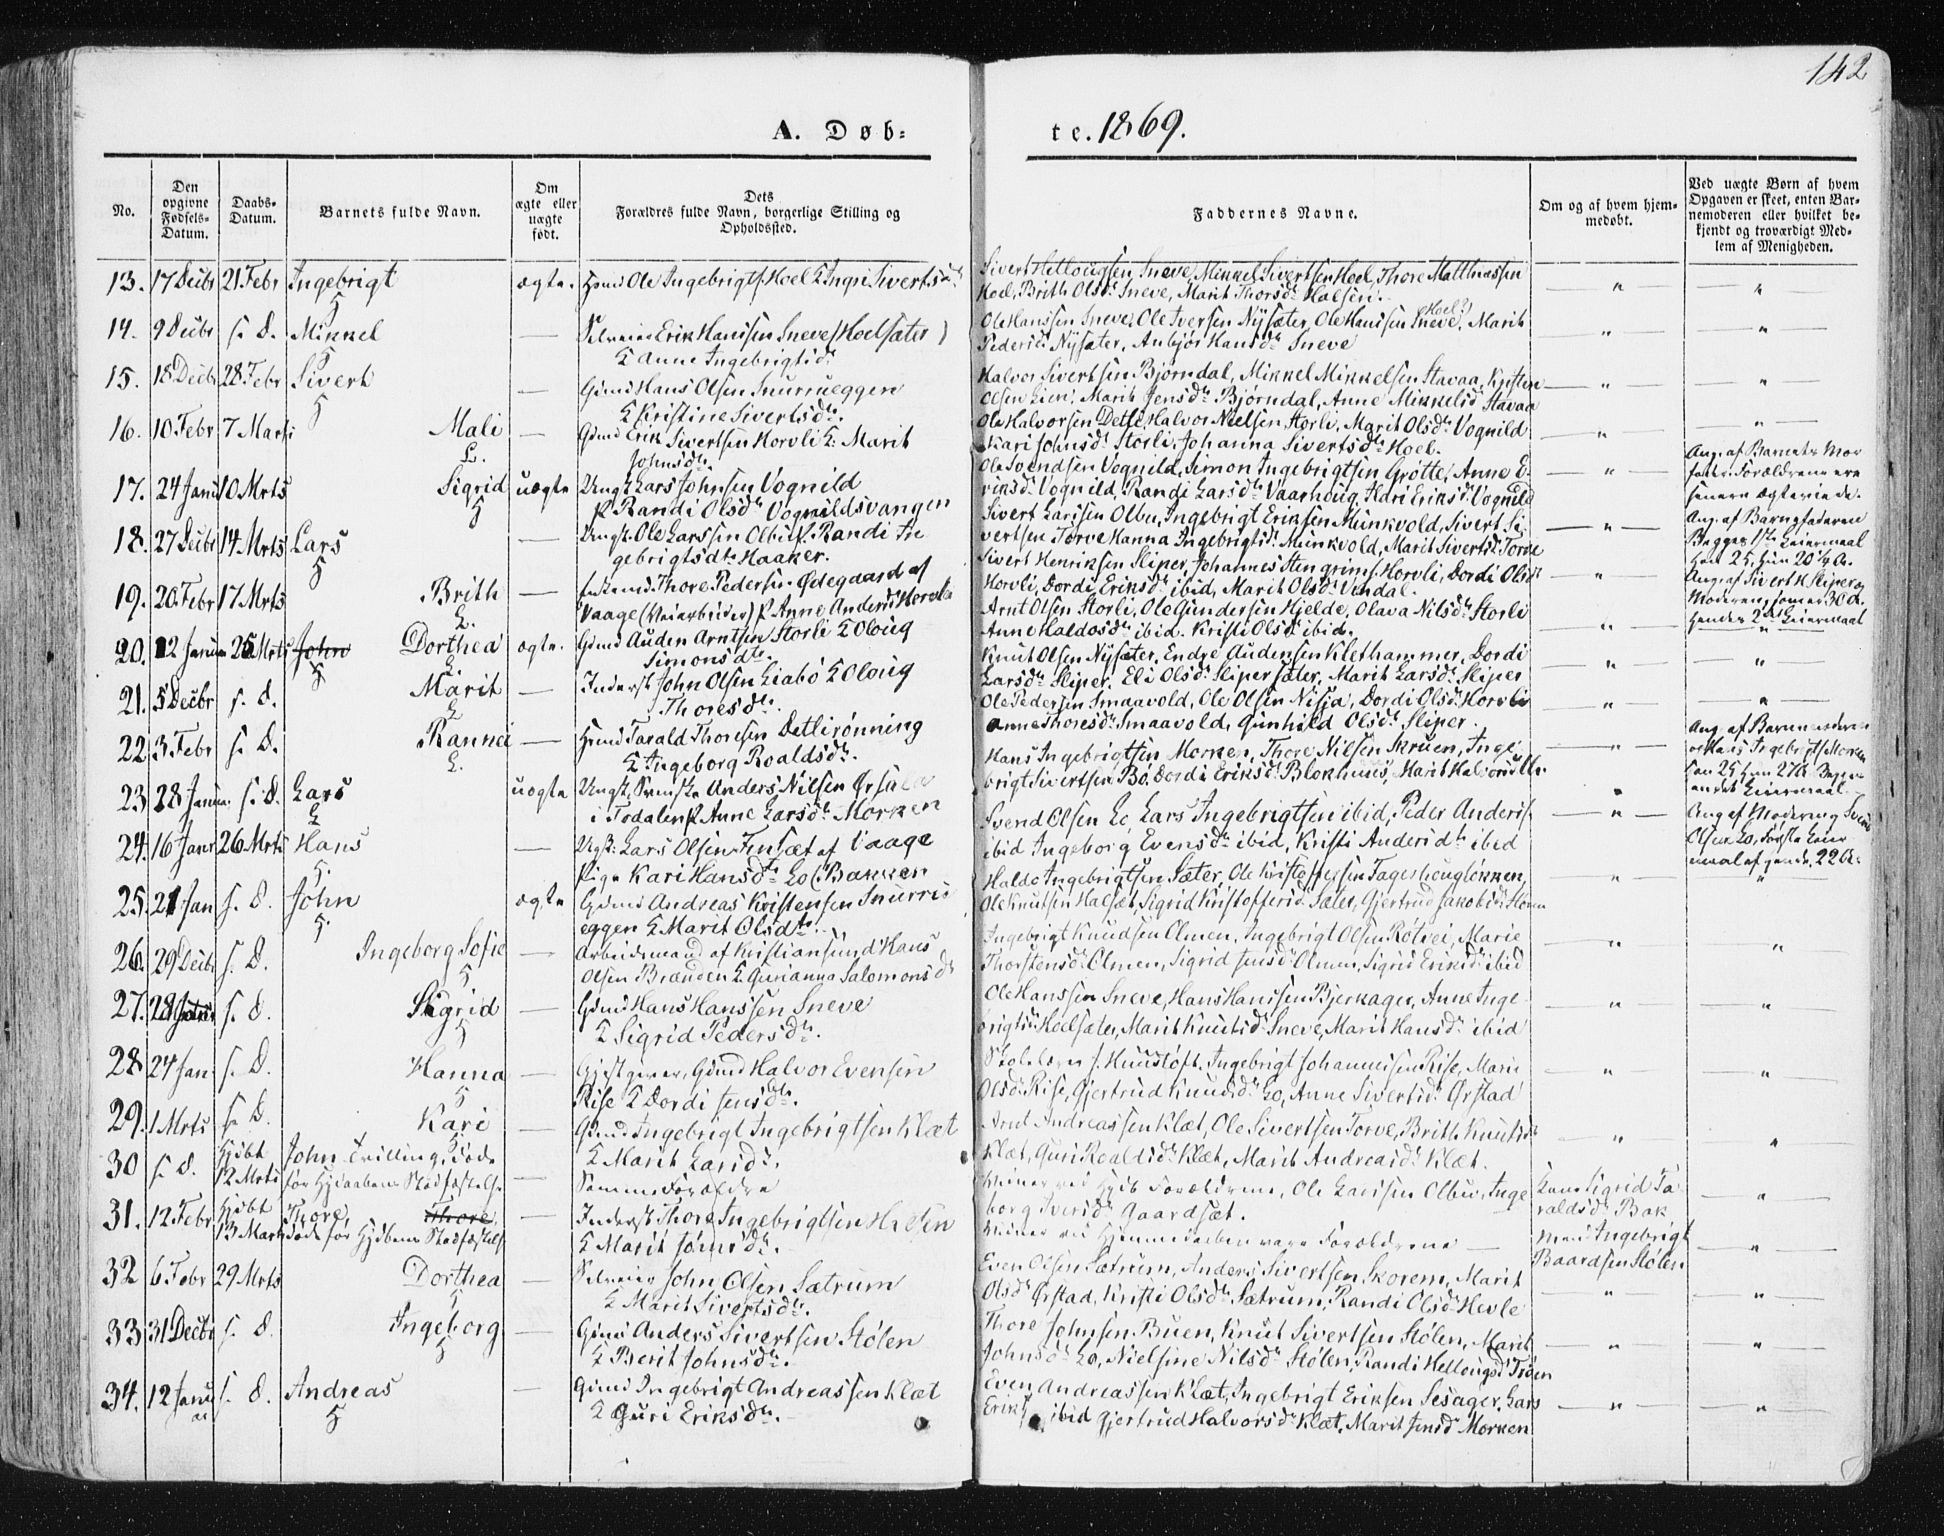 142
A. Døb-
te. 1869.
No.
Den opgivne Fødsels-Datum.
Daabs-Datum.
Barnets fulde Navn.
Om ægte eller uægte født.
Dets Forældres fulde Navn, borgerlige Stilling og Opholdssted.
Faddernes Navne.
Om og af hvem hjem-medøbt.
Ved uægte Børn af hvem Opgaven er skeet, enten Bar-nemoderen eller hvilket be-kjendt og troværdigt Med-lem af Menigheden.
13. 17 Decbr 21 Febr Ingebrigt ægte. Gmd Ole Ingebrigts Hoel & Ingri Sivertsd.
Sivert Hellougsen Sneve, Mikkel Sivertsen Hoel, Thore Matthiassen
Hoel, Brith Olsd. Sneve, Marit Thorsd. Halsen.
14. 9 Decbr s. D. Mikkel — Selveier Erik Hanssen Sneve (Hoelsæter)
& Anne Ingebrigtsd.
Ole Hanssen Sneve, Ole Iversen Nysæter, Ole Hanssen Sneve (Hoel?), Marit
Pedersd. Nysæter, Anbjør Hansd. Sneve
15. 18 Decbr 28 Febr Sivert — Gmd Hans Olsen Snurrueggen
& Kristine Sivertsdtr.
Halvor Sivertsen Bjørndal, Mikkel Mikkelsen Stavaa, Kristen
Olsen Lien, Marit Jensd. Bjørndal, Anne Mikkelsd. Stavaa
16. 10 Febr 7 Marts Mali — Gmd Erik Sivertsen Horvli & Marit
Johnsdtr.
Ole Halvorsen Detli, Halvor Nielsen Storli, Marit Olsd. Vognild
Kari Johnsd. Storli, Johanna Sivertsd. Hoel.
17. 24 Janu 10 Mrts Sigrid uægte Ungk. Lars Johnsen Vognild
P. Randi Olsd. Vognildsvangen
Ole Svendsen Vognild, Simon Ingebrigtsen Grøtte, Anne E-
riksd. Vognild, Randi Larsd. Vaarhoug, Kari Eriksd. Vognild
Ang. af Barnets Mor
fader. Forældrene ere
senere ægteviede.
18. 27 Decbr 14 Mrts Lars — Ungk. Ole Larssen Olbu P. Randi In
gebrigtsdtr Haaker.
Sivert Larssen Olbu, Ingebrigt Eriksen Munkvold, Sivert Si-
vertsen Torve Hanna Ingebrigtsd. Munkvold, Marit Sivertsd. Torve
Ang. af Barnefaderen
Begges 1ste Leiermaal
Han 25, hun 20 ½ A.
19. 20 Febr 17 Mrts Brith — Thore Pedersen Ødegaard af
Vaage (Veiarbeider) P. Anne Andersd. Horvli
Sivert Henriksen Sliper, Johannes Stengrims. Horvli, Dordi Olsd.
Horvli, Dordi Eriksd. ibid, Marit Olsd. Vindal.
Ang. af Sivert H Sliper og
Moderen, som er 30 A.
Hendes 2det Leiermaal
20. 12 Januar 26 Mrts Dorthea ægte. Gmd Auden Arntsen Storli & Oloug
Simonsdtr.
Arnt Olsen Storli, Ole Gundersen Hjelde, Olava Nilsd. Storli
Anne Haldosd. ibid. Kristi Olsd. ibid.
21. 5 Decbr s. D. Marit — Inderst John Olsen Liabø & Oloug
Thoresdtr.
Knut Olsen Nysæter, Endre Audensen Klethammer, Dordi
Larsd. Sliper, Eli Olsd. Slipersæter, Marit Larsd. Sliper
22 3 Febr s. D. Rannei — Gmd Tarald Thoresen Detlirønning
& Ingeborg Roaldsdtr.
Ole Pedersen Smaavold, Ole Olsen Nisja, Dordi Olsd. Horvli
Anne Thoresd. Smaavold, Gunhild Olsd. Sliper.
23 28 Janu. s. D. Lars uægte Ungk. Svenske Anders Nilsen Ørsula
i Todalen P. Anne Larsd. Morken
Hans Ingebrigtsen Morken, Thore Nielsen Skruen, Inge
brigt Sivertsen Bø, Dordi Eriksd. Blokhuus, Marit Halvorsd.
24. 16 Janr 26 Mrts Hans — Ungk: Lars Olsen Finsæt af Vaage
Pige Kari Hansd. Lo (Bakken
Svend Olsen Lo, Lars Ingebrigtsen ibid, Peder Anders.
ibid Ingeborg Evensd. ibid, Kristi Andersd. ibid
Ang. af Moderen og Svend
Olsen Lo, Første Leier
maal af hende. 22 A.
25. 21 Jan s. D. John ægte Gmd Andreas Kristensen Snurru
eggen & Marit Olsdtr.
Haldo Ingebrigtsen Sæter, Ole Kristoffersen Fagerhougløkken,
Ole Knutsen Halsæt, Sigrid Kristoffersd. Sæter, Gjertrud Jakobsd.
26. 29 Decbr s. D. Ingeborg Sofie — Arbeidsmand af Kristiansund Hans
Olsen Brænden & Gurianna Salomonsd.
Ingebrigt Knudsen Olmen, Ingebrigt Olsen Røtvei, Marie
Thorstensd. Olmen, Sigrid Jensd. Olmen, Sigrid Eriksd. ibid
27. s. D. Sigrid — Gmd Hans Hanssen Sneve
& Sigrid Pedersdtr.
Ole Hanssen Sneve, Hans Hanssen Bjerkager, Anne Inge
brigtsd. Hoelsæter, Marit Knutsd. Sneve, Marit Hansd. ibid
28 24 Jan s. D. Hanna — Gjestgiver, Gmd Halvor Evensen
Rise & Dordi Jensdtr.
Skolelærer J. Huustoft, Ingebrigt Johannessen Rise, Mari
Olsd. Rise, Gjertrud Knudsd. Lo, Anne Sivertsd. Ørstad
29. 1 Mrts s. D. Kari — Gmd Ingebrigt Ingebrigtsen Klæt
& Marit Larsd.
Arnt Andreassen Klæt, Ole Sivertsen Torve, Brith Knutsd.
Klæt, Guri Roaldsd. Klæt, Marit Andreasd. Klæt.
30 s. D. Hjdbt 12 Mrts John Tvilling, død
før Hjdaabens Stadfæstelse — Samme Forældre
Vidner ved Hjdb Forældrene, Ole Larssen Olbu, Inge
borg Iversd. Gaardsæt.
Kone Sigrid Ta
raldsd. Bak
31. 12 Febr Hjdbt 13 Marts Thore, Thore
død før Hjdbens Stadfæstelse — Inderst Thore Ingebrigtsen Halsen
& Marit Johnsdtr.
Vidner ved Hjemmedaaben vare Forældrene —
Mand Ingebrigt
Baardsen Stølen
32 6 Febr 29 Mrts Dorthea — Selveier John Olsen Sætrum
& Marit Sivertsdtr.
Even Olsen Sætrum, Anders Sivertsen Skorem, Marit
Olsd. Ørstad, Kristi Olsd. Sætrum, Randi Olsd. Hevle
33. 31 Decbr s. D. Ingeborg — Gmd Anders Sivertsen Stølen
& Berit Johnsdtr.
Thore Johnsen Buen, Knut Sivertsen Stølen, Marit
Johnsd. Lo, Nielsine Nilsd. Stølen, Randi Hellougsd. Troen
34. 12 Janu s. D. Andreas — Gmd Ingebrigt Andreassen Klæt
& Guri Eriksdtr.
Even Andreassen Klæt, Ingebrigt Eriksen Sesager, Lars
Eriks. ibid Gjertrud Halvorsd. Klæt, Marit Jensd. Morken